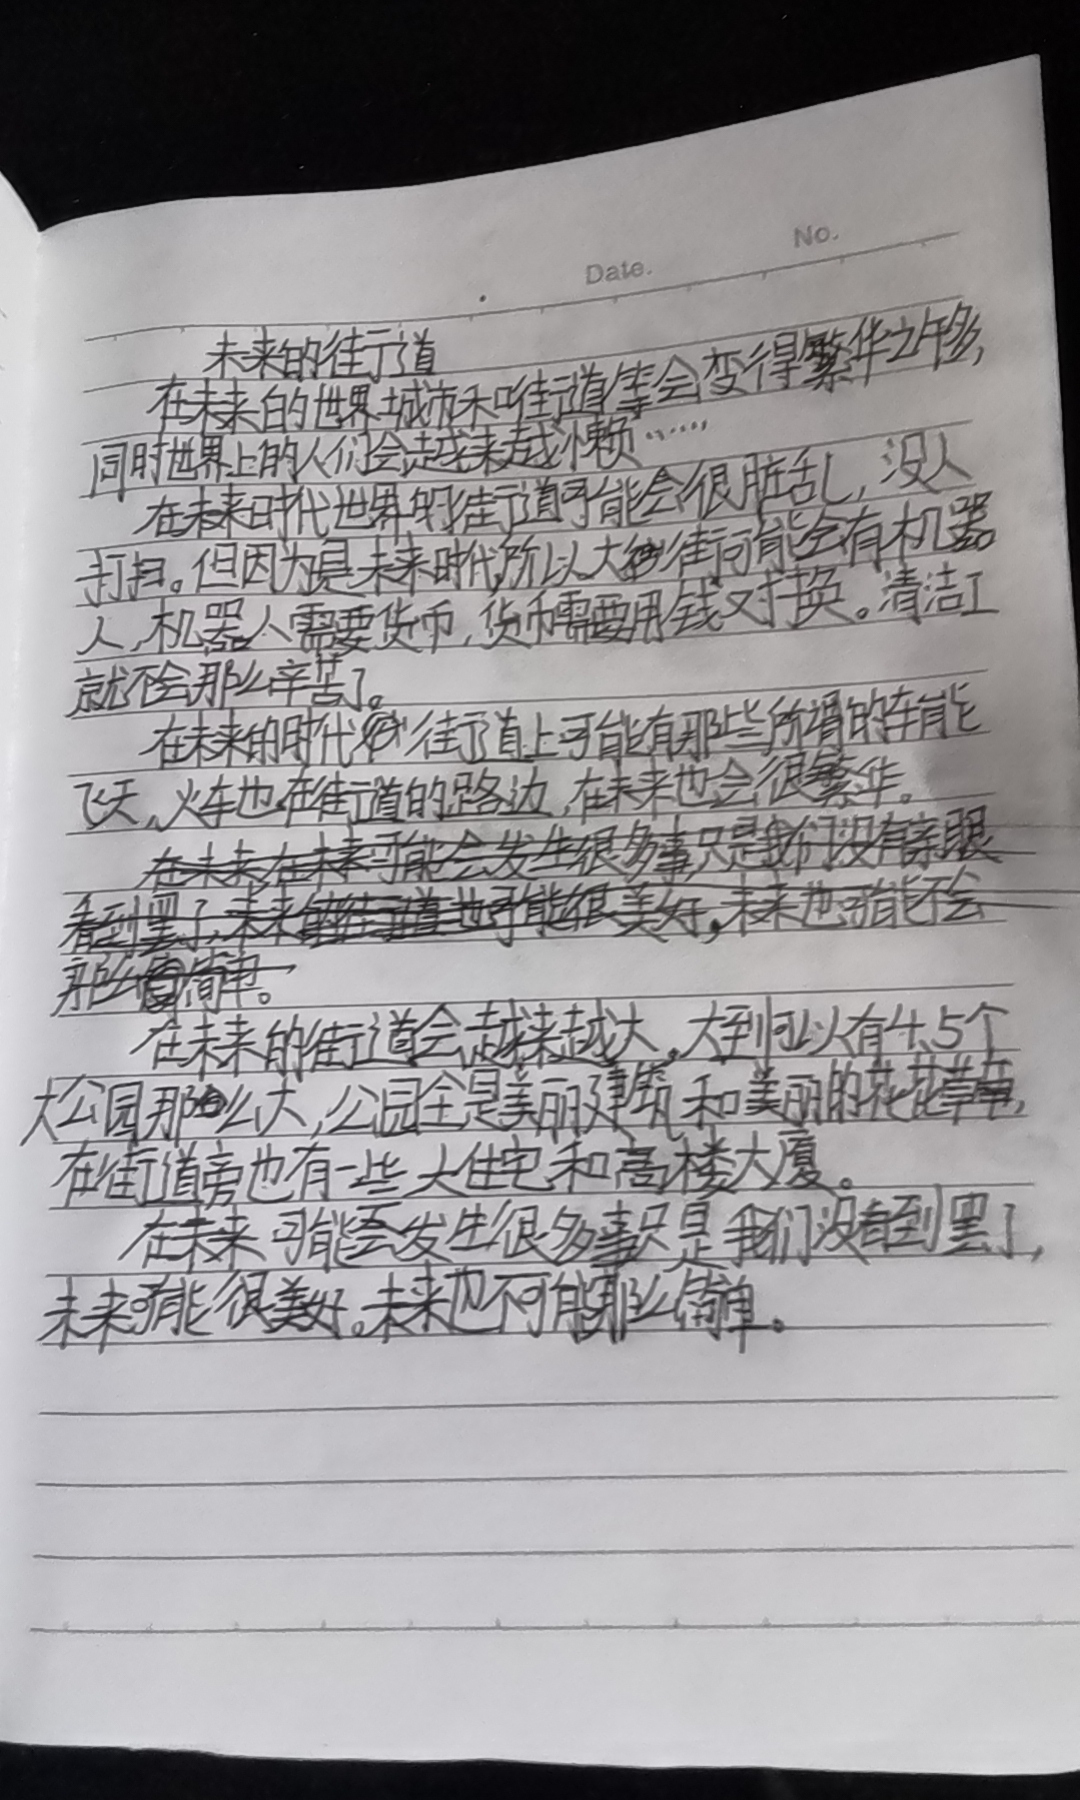 No.
Date.
未来的街道
在未来的世界城市和街道等会变得繁华之许多,
同时世界上的人们会越来越懒……
在未来时代世界的街道可能会很脏乱,没人
打扫。但因为是未来时代,所以大街可能会有机器
人,机器人需要货币,货币需要用钱对换。清洁工
就不会那么辛苦了。
在未来的时代街道上可能有那些所谓的车能
飞天,火车也在街道的路边,在未来也会很繁华。
在未来在未来可能会发生很多事只是我们没有亲眼
看到罢了,未来的街道也可能很美好,未来也可能不会
那么简单。
在未来的街道会越来越大。大到可以有4、5个
大公园那么大,公园全是美丽建筑和美丽的花花草草,
在街道旁也有一些大住宅和高楼大厦。
在未来可能会发生很多事只是我们没看到罢了,
未来可能很美好。未来也不可能那么简单。